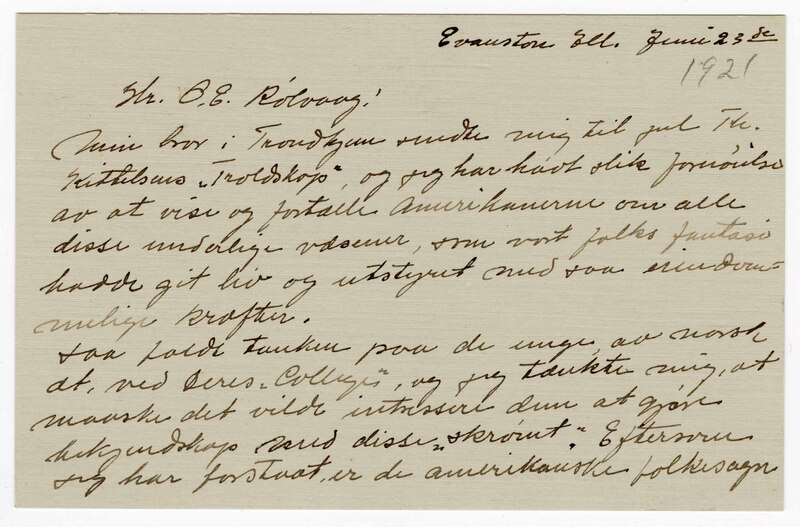 Evanston Ill. Juni 23de
1921
Hr. O.E. Rölvaag!
Min bror i Trondhjem sendte mig til jul Th.
Kittelsens „Troldskap", og jeg har havt slik fornöielse
av at vise og fortælle Amerikanerne om alle
disse underlige væsener, som vort folks fantasi
hadde git liv og utstyret med saa eiendom-
melige kræfter.
Saa faldt tanken paa de unge, av norsk
æt, ved Deres „College", og jeg tænkte mig, at
maaske det vilde intressere dem at gjöre
bekjendskap med disse „skrömt". Eftersom
jeg har forstaat, er de amerikanske folkesagn